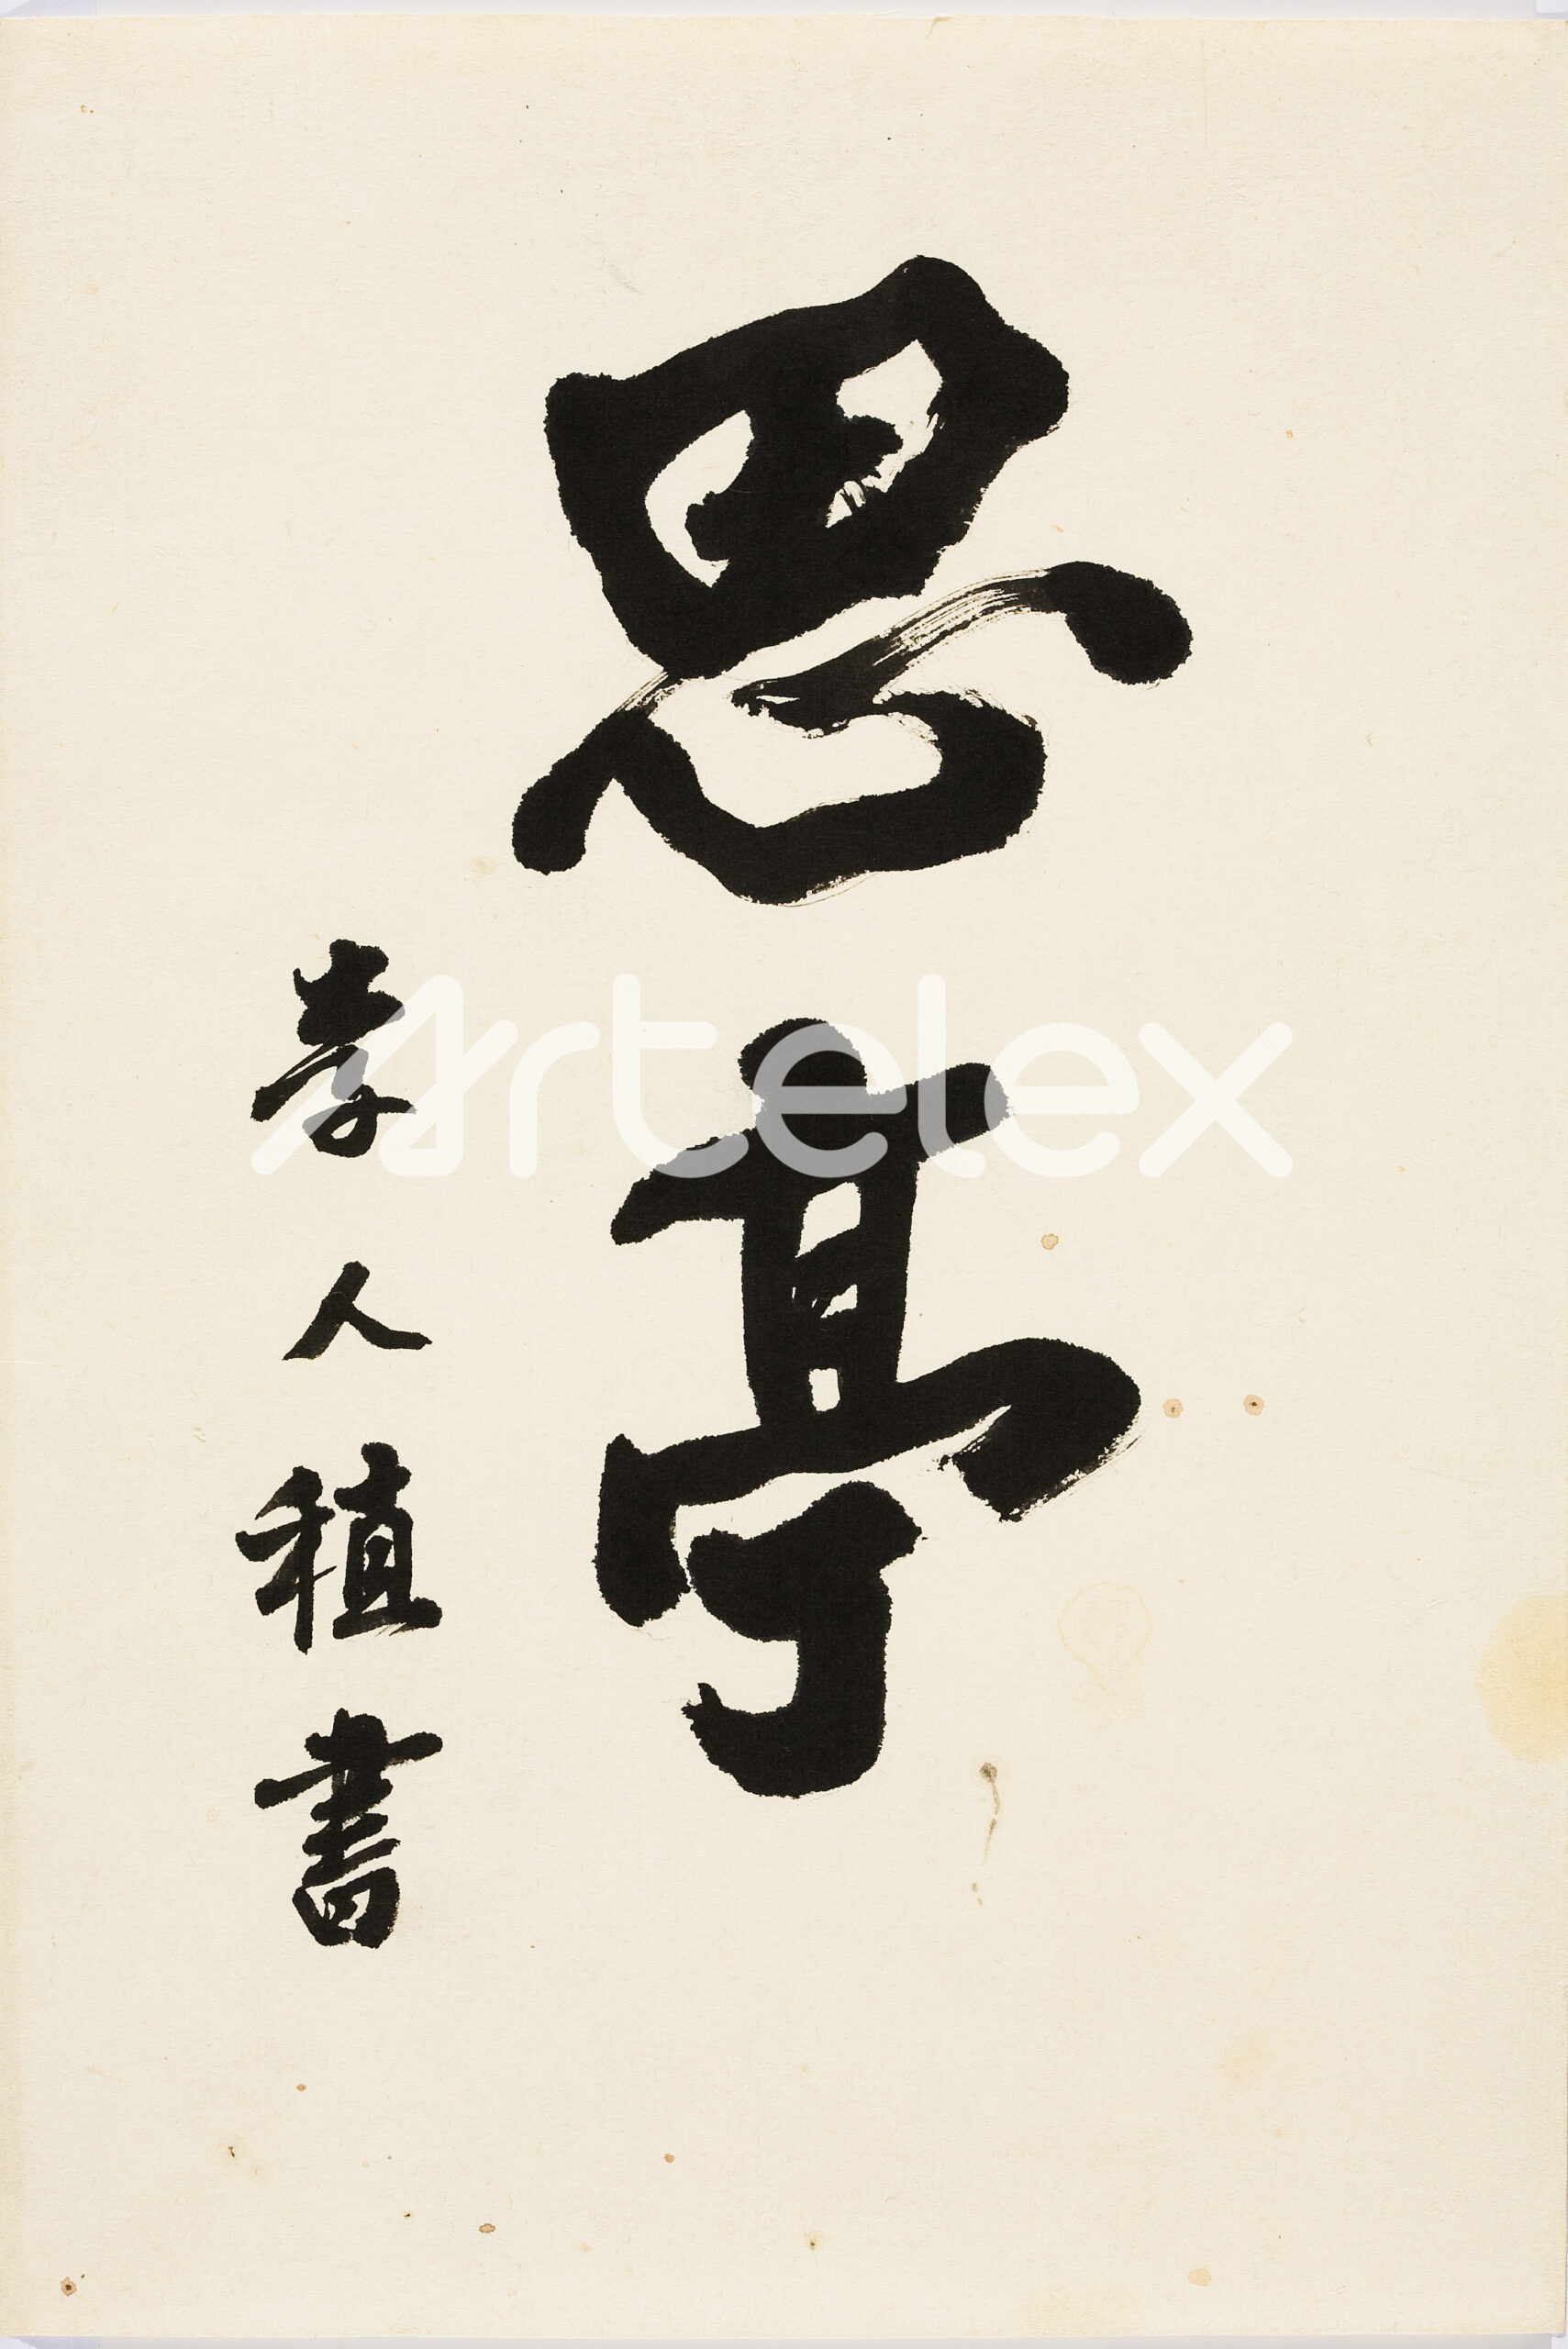 思亭
孝人稙書
Artelex